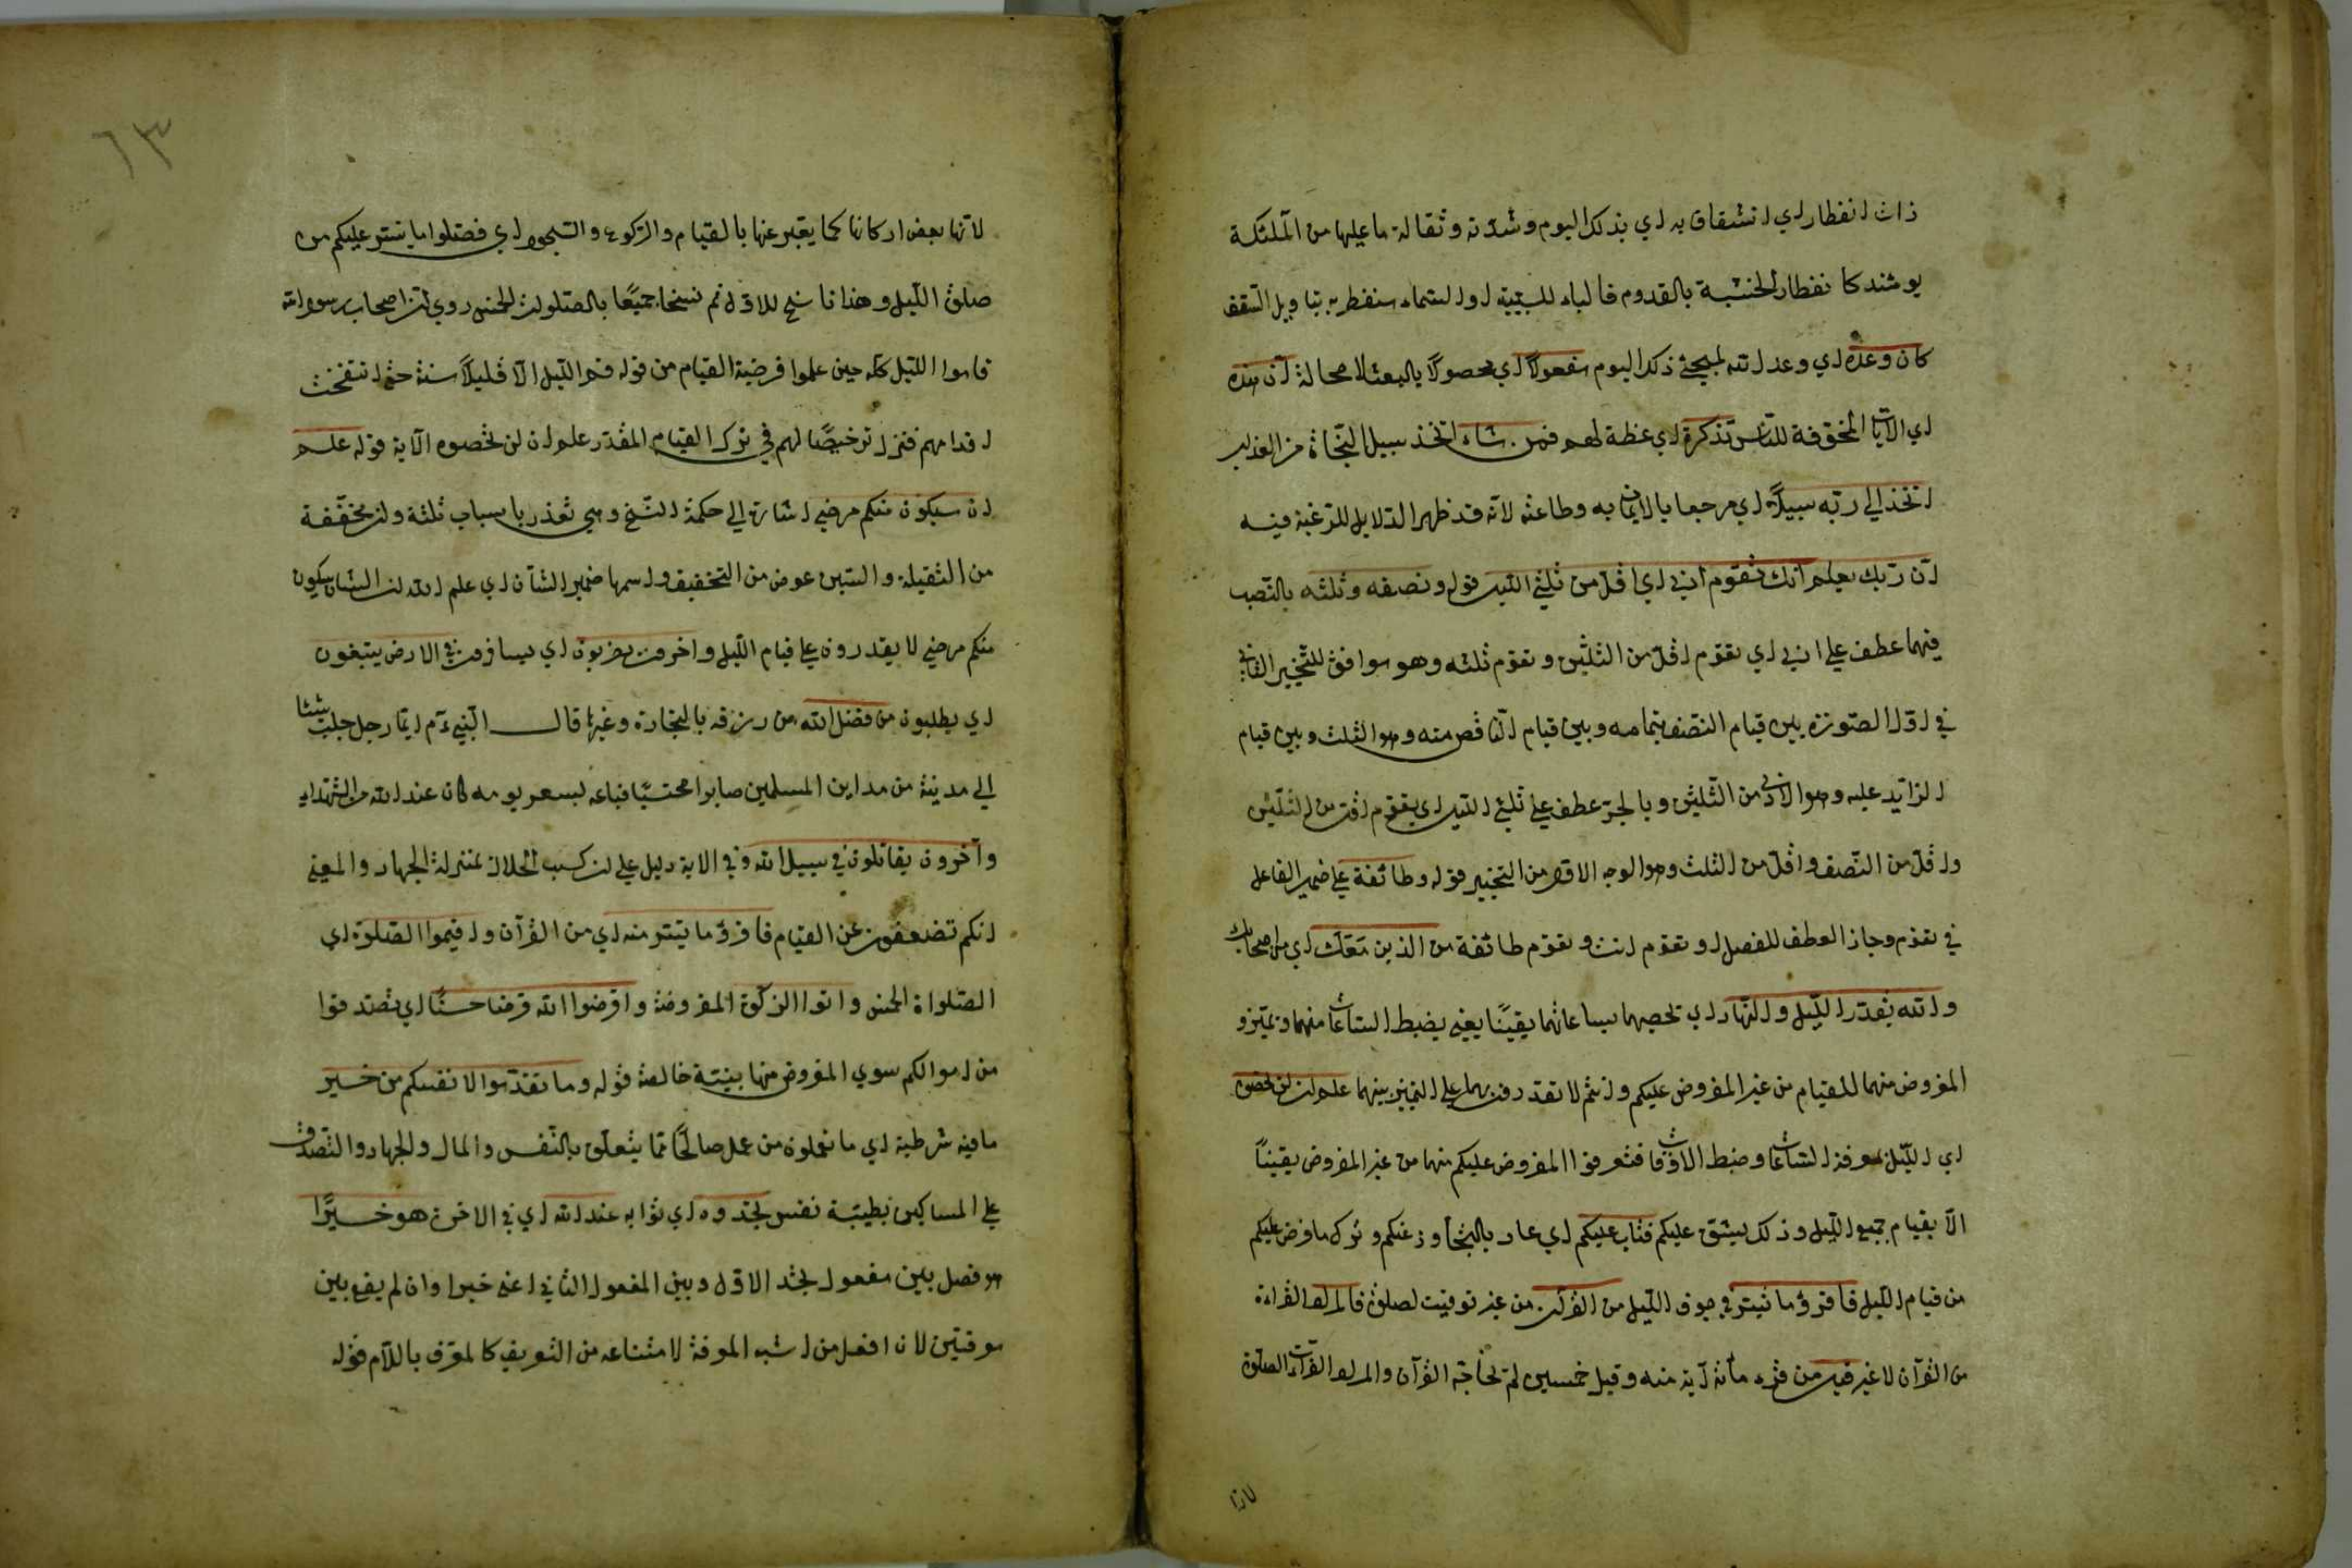 ذات انفطار اي انشقاق به اي بذلك اليوم وشدّته وثقالة ما عليها من الملئكة
يومئذ كانفطار الخشبة بالقدوم فالباء للسببيّة او السماء منفطر به بتاويل السّقف
كان وعده اي وعد الله لمجيئ ذلك اليوم مفعولًا اي محصولًا بالبعث لا محالة انّ هذه
اي الآيات المخوّفة للنّاس تذكرة اي عظة لهم فمن شاء اتّخذ سبيل النّجاة من العذاب
اتّخذ الي ربّه سبيلًا اي مرجعا بالايمان به وطاعته لانّه قد ظهر الدّلايل للترغبة فيه
انّ ربّك يعلم أنّك تقوم أدني اي اقلّ من ثلثي اللّيل قوله ونصفه وثلثه بالنّصب
فيهما عطف علي ادني اي تقوم اقلّ من الثلثين وتقوم ثلثه وهو موافق للتّخيير الثاني
في اوّل السّورة بين قيام النّصف بتمامه وبين قيام النّاقص منه وهو الثلث وبين قيام
الزّائد عليه وهو الادني من الثّلثين وبالجرّ عطف علي ثلثي اللّيل اي تقوم اقلّ من الثلثين
واقلّ من النّصف واقلّ من الثلث وهو الوجه الاقوي من التّخيير قوله وطائفة علي ضمير الفاعل
في تقوم وجاز العطف للفصل او تقوم انت وتقوم طائفة من الذين معك اي من اصحابك
والله يقدّر اللّيل والنّهار اي تحصيهما ساعاتهما يقينًا يعني يضبط الساعات منهما وتميّزو
المفروض منهما للقيام من غير المفروض عليكم وانتم لا تقدرون بهما علي التمييز بينهما علم ان لن تحصوه
اي اللّيل معرفة الساعات وضبط الاوقات فتعرفوا المفروض عليكم منهما من غير المفروض يقينًا
الّا بقيام جميع اللّيل وذلك يشقّ عليكم فتاب عليكم اي عاد بالتّجاوز عنكم وترك ما فرض عليكم
من قيام اللّيل فاقرؤا ما تيسّر في جوف اللّيل من القرآن من غير توقيت لصلوة فالمراد القراءة
من القرآن لا غير قيل من قرء مائة آية منه وقيل خمسين لم يحاجّه القرآن والمراد القرآت الصلوة
لانها
٦٣
لانّها بعض اركانها كما يعبّر عنها بالقيام والركوع والسّجود اي فصلّوا ما يتيسّر عليكم من
صلوة اللّيل وهذا ناسخ للاوّل ثم نسخا جميعًا بالصّلوات الخمس روي انّ اصحاب رسول الله
قاموا اللّيل كلّه حين علموا فرضيّة القيام من قوله قم اللّيل الّا قليلًا سنة حتّي انتفخت
اقدامهم فنزل ترخيصًا لهم في ترك القيام المقدّر علم ان لن تحصوه الآية قوله علم
ان سيكون منكم مرضي اشارة الي حكمة النّسخ وهي تعذر باسباب ثلثة وان مخفّفة
من الثّقيلة والسّين عوض من التخفيف واسمها ضمير الشّأن اي علم الله ان الشّان سيكون
منكم مرضي لا يقدرون علي قيام اللّيل واخرون يضربون اي يسافرون في الارض يبتغون
اي يطلبون من فضل الله من رزقه بالتجارة وغيرها قال النّبيّ ءم ايّما رجل جلب شيئا
الي مدينة من مداين المسلمين صابرا محتسبًا فباعه بسعر يومه كان عند الله من الشّهداء
وآخرون يقاتلون في سبيل الله وفي الاية دليل علي ان كسب الحلال بمنزلة الجهاد والمعني
انّكم تضعفون عن القيام فاقرؤا ما تيسّر منه اي من القرآن واقيموا الصّلوة اي
الصّلواة الخمس واتوا الزكوة المفروضة واقرضوا الله قرضا حسنًا اي تصّدقوا
من اموالكم سوي المفروض منها بنيّة خالصة قوله وما تقدّموا لانفسكم من خير
ما فيه شرطية اي ما تعملون من عمل صالحًا ممّا يتعلّق بالنّفس والمال والجهاد والتّصدّق
علي المساكين بطيبة نفس تجدوه اي ثوابه عند الله اي في الاخرة هو خيرًا
هو فصل بين مفعول تجد الاوّل وبين المفعول الثّاني اعني خيرا وان لم يقع بين
موقتين لان افعل من اشبه المعرفة لامتناعه من التعريف كالمعرّف باللّام قوله